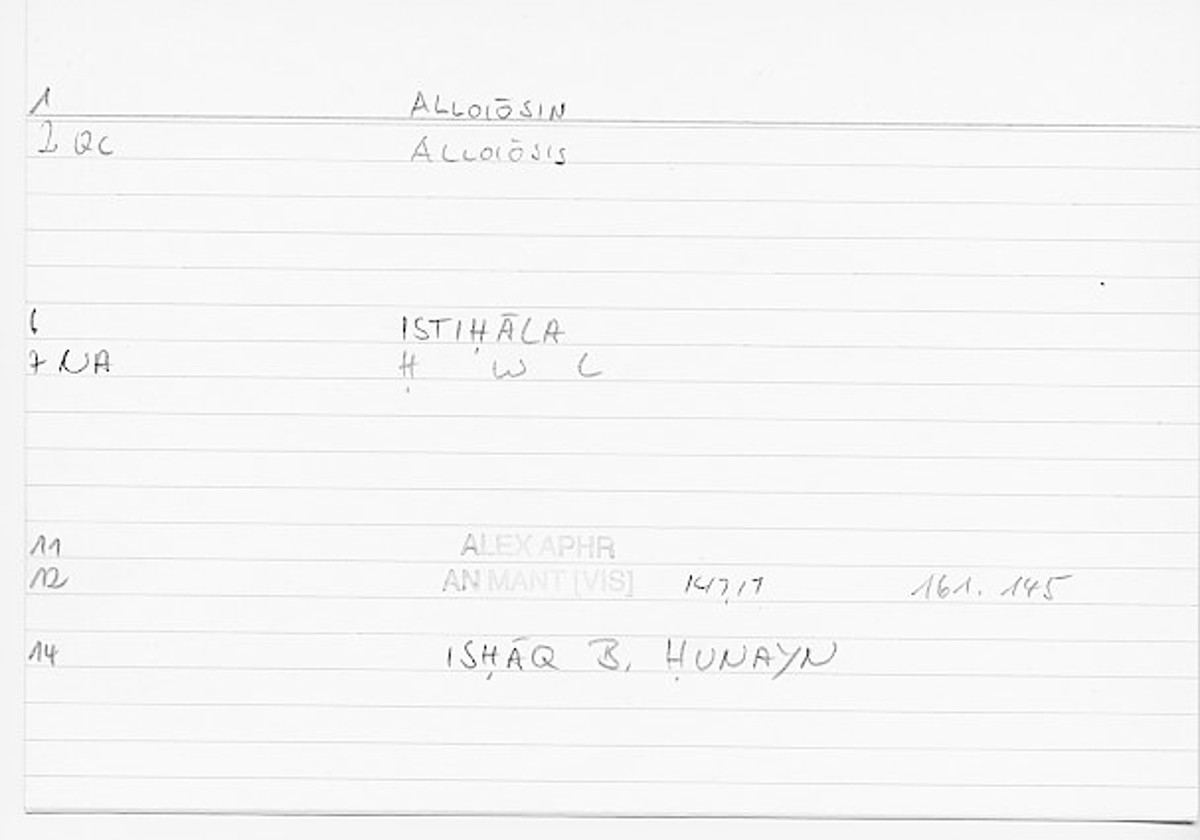 1 ALLOIŌSIN
2 QC ALLOIŌSIS
6 ISTIḤĀLA
7 NA Ḥ W L
11 ALEX APHR
12 AN MANT [VIS] 147,17 161. 145
14 ISḤĀQ B. ḤUNAYN